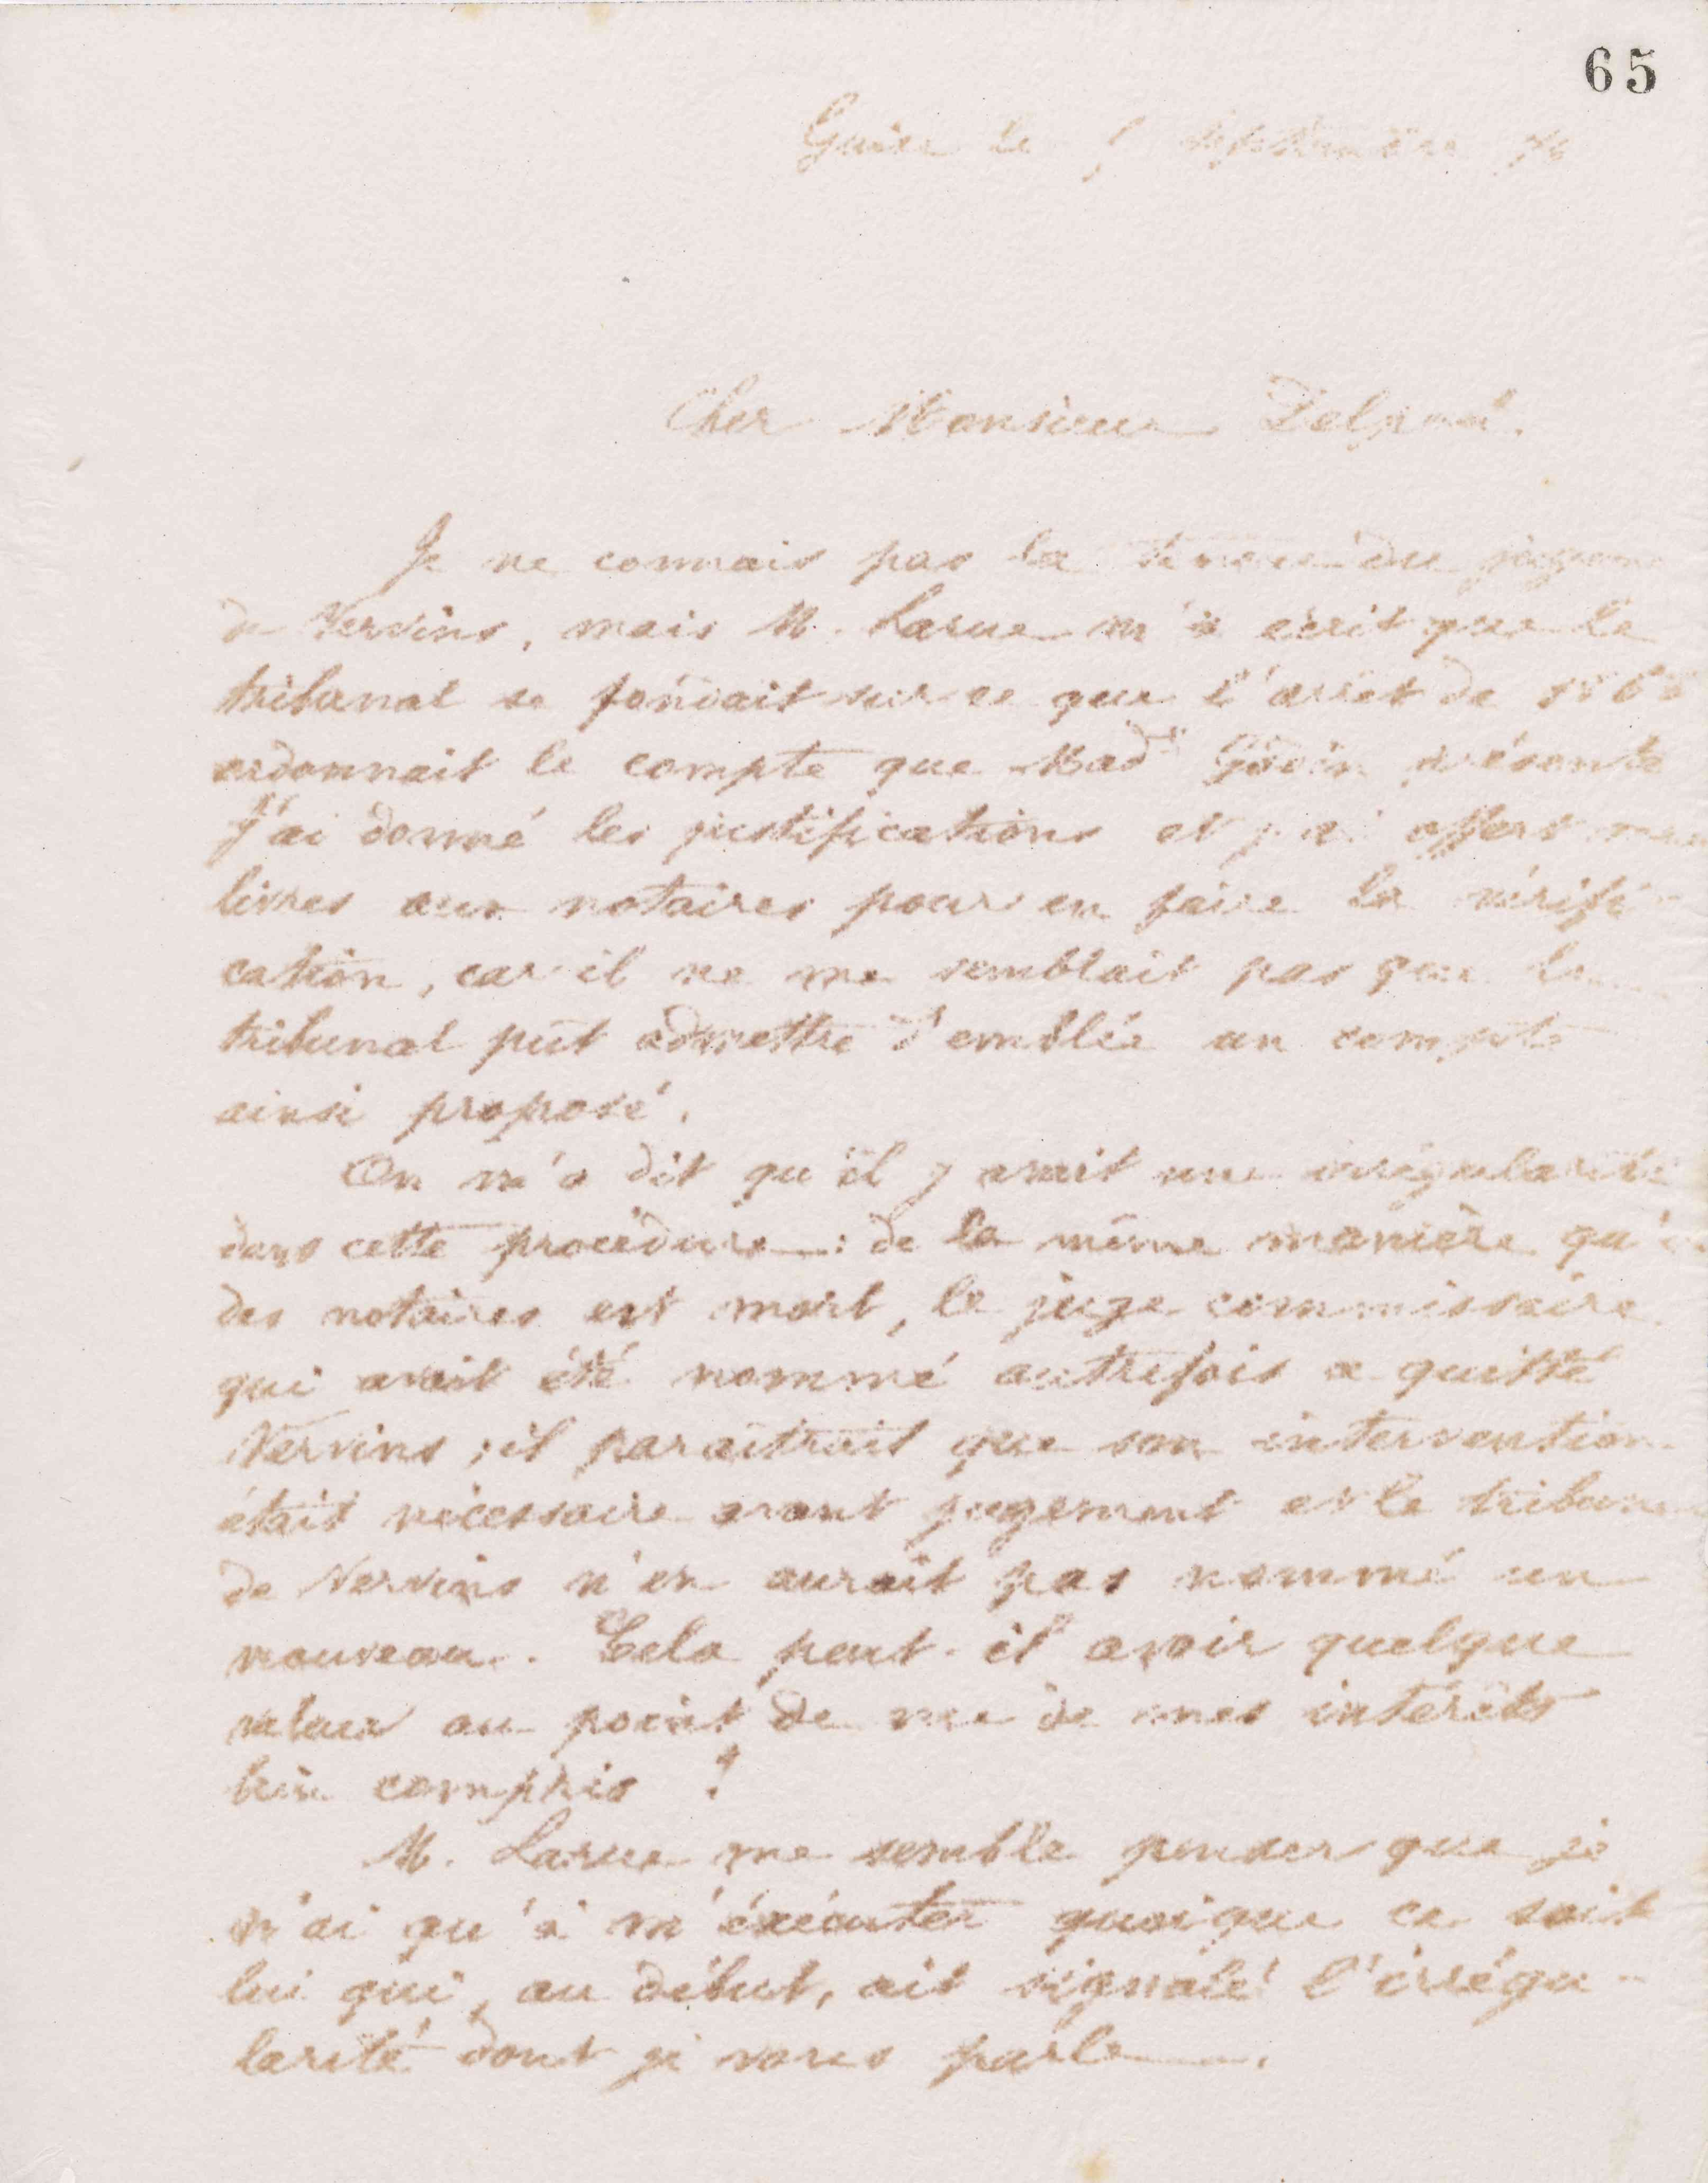 65
Guise le septembre 76
Cher Monsieur Delpech.
Je ne connais pas la teneur du jugem
de Vervins, mais M. Larue m'a écrit que le
tribunal se fondait sur ce que l'arrêt de 186
ordonnait le compte que Made Godin présente
J'ai donné les justifications et j'ai offert mes
livres aux notaires pour en faire la vérifi
cation, car il ne me semblait pas que le
tribunal put admettre d'emblée un compte
ainsi proposé.
On m'a dit qu'il y avait une irrégularité
dans cette procédure : de la même manière qu'
des notaires est mort, le juge commissaire
qui avait été nommé autrefois a quitté
Vervins ; il paraîtrait que son intervention
était nécessaire avant jugement et le tribuna
de Vervins n'en aurait pas nommé un
nouveau. Cela peut-il avoir quelque
valeur au point de vue de mes intérêts
bien compris ?
M. Larue me semble penser que je
n'ai qu'à m'exécuter quoique ce soit
lui qui, au début, ait signalé l'irrégu-
larité dont je vous parle.